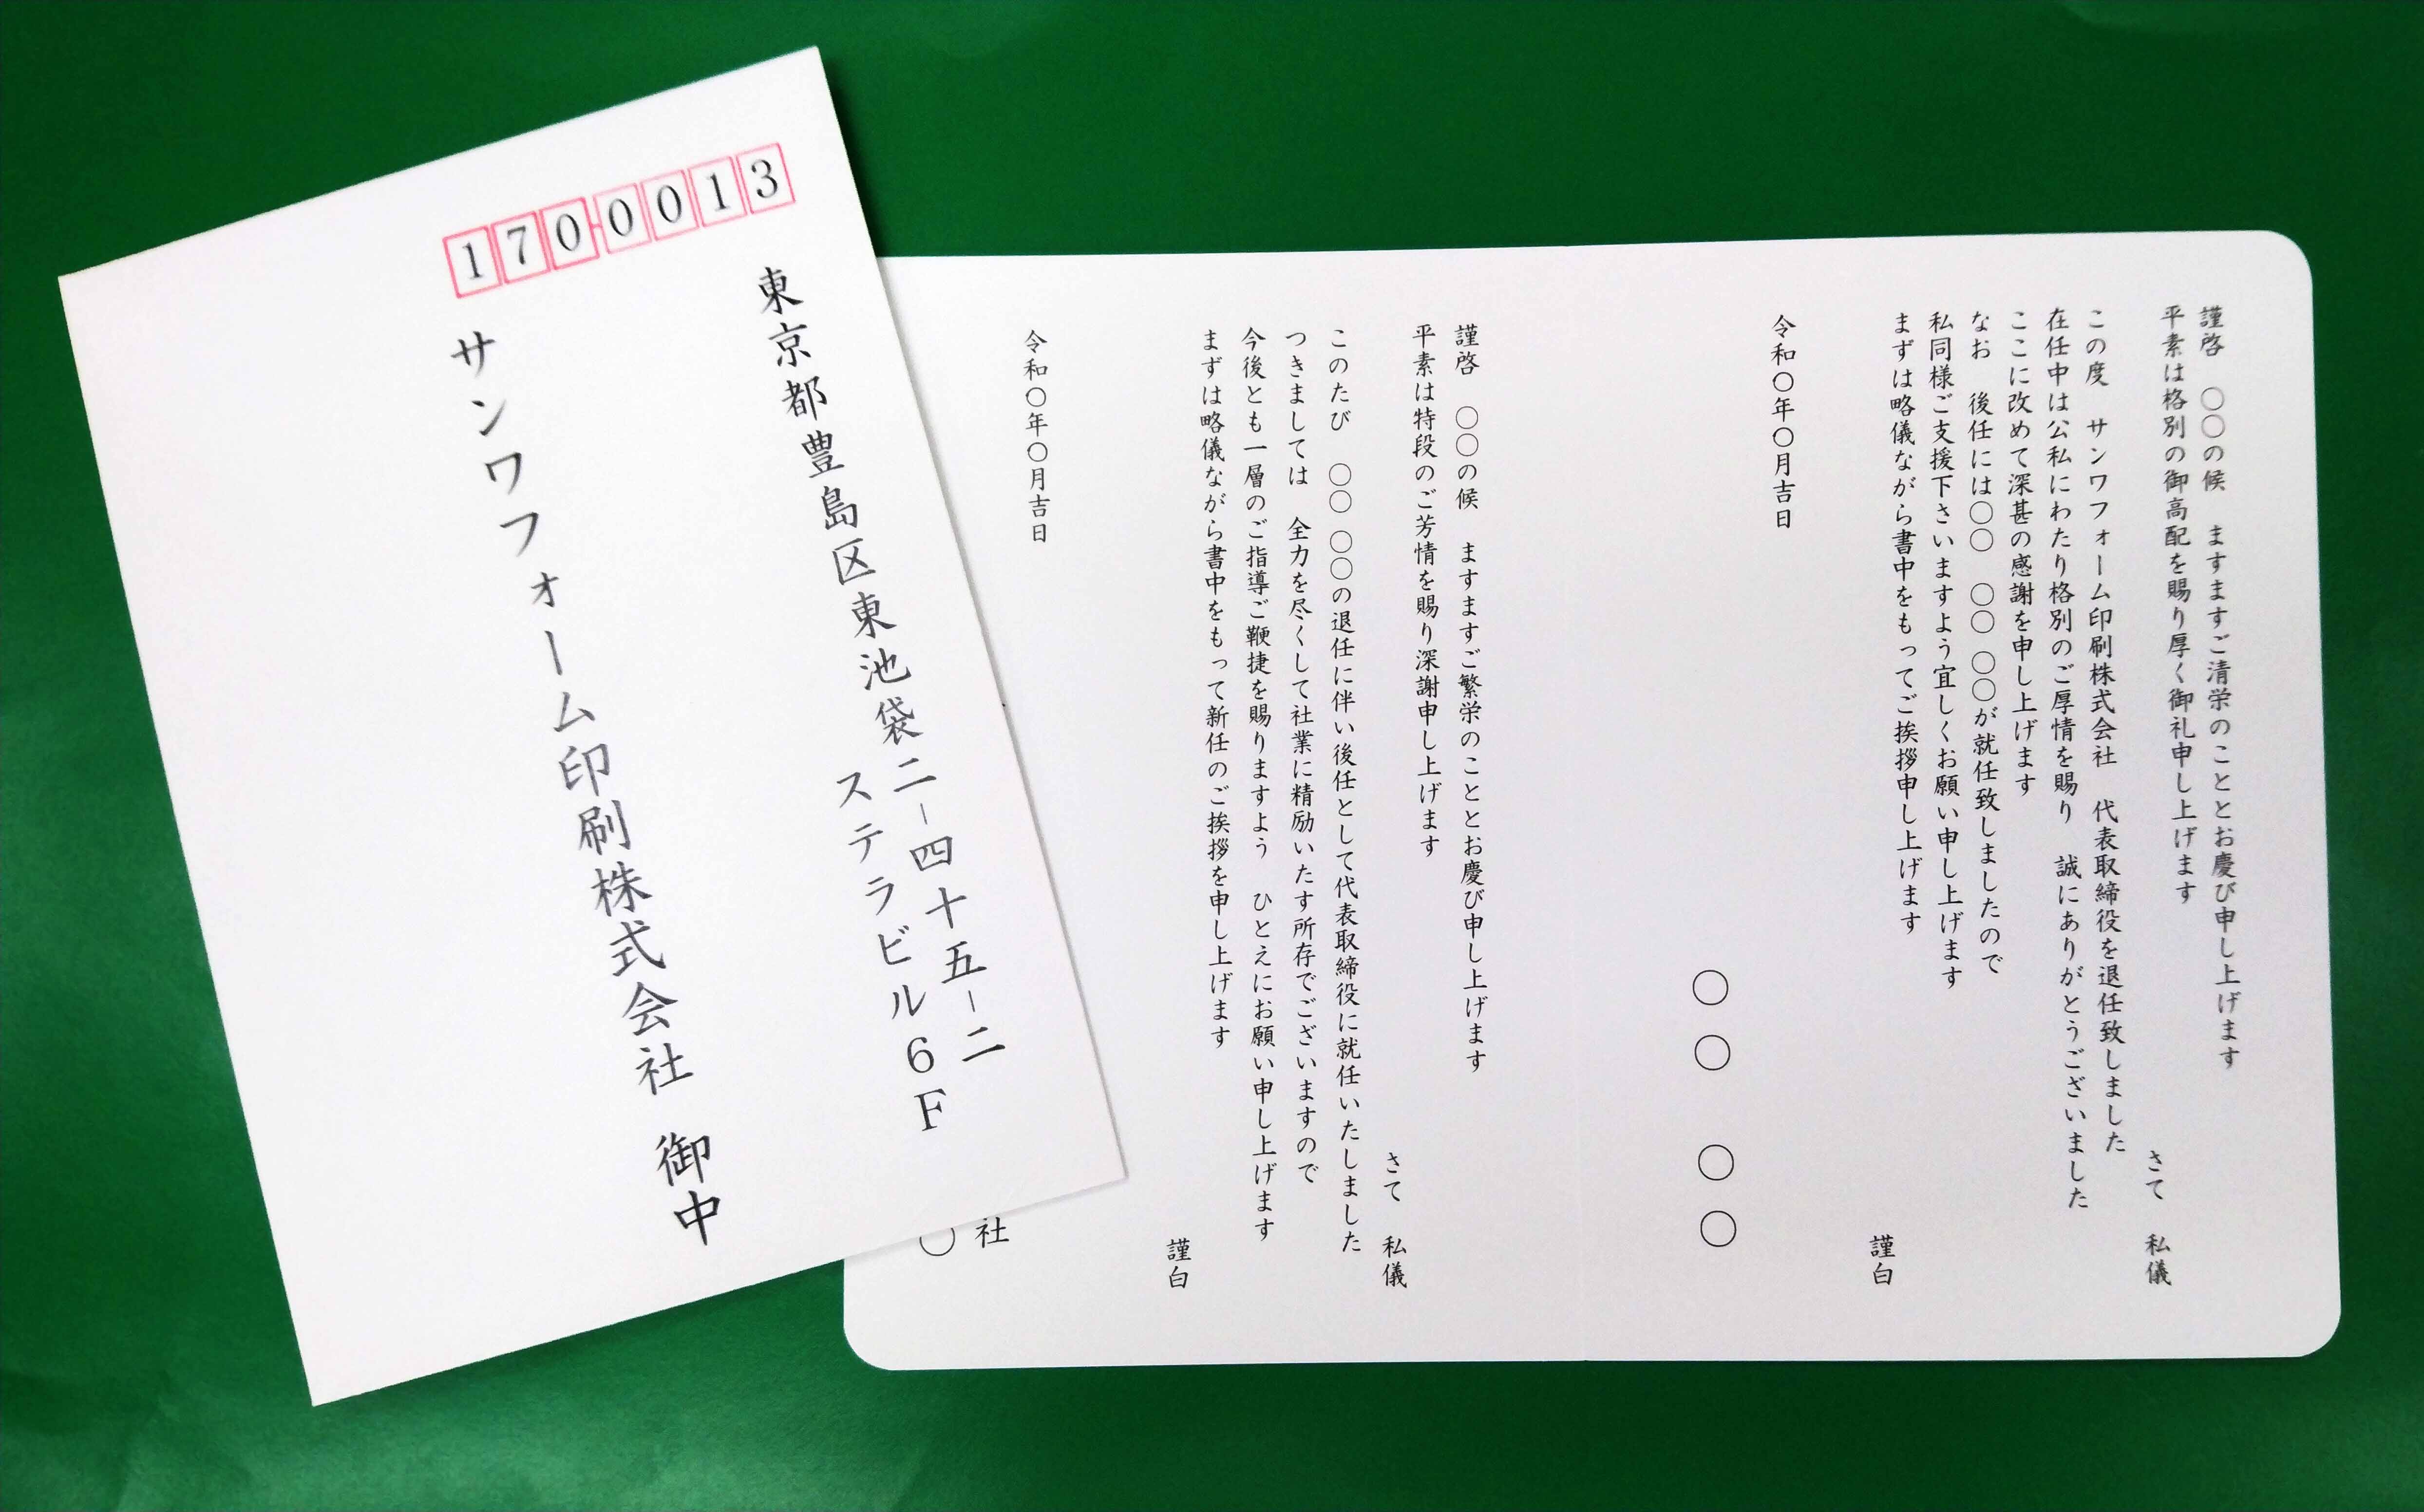 1700013
東京都豊島区東池袋二-四十五-二
ステラビル6F
サンワフォーム印刷株式会社 御中
謹啓 〇〇の候 ますますご清栄のこととお慶び申し上げます
平素は格別の御高配を賜り厚く御礼申し上げます
さて 私儀
この度 サンワフォーム印刷株式会社 代表取締役を退任致しました
在任中は公私にわたり格別のご厚情を賜り 誠にありがとうございました
ここに改めて深甚の感謝を申し上げます
なお 後任には〇〇 〇〇 〇〇が就任致しましたので
私同様ご支援下さいますよう宜しくお願い申し上げます
まずは略儀ながら書中をもってご挨拶申し上げます
謹白
令和〇年〇月吉日
〇〇 〇〇
謹啓 〇〇の候 ますますご繁栄のこととお慶び申し上げます
平素は特段のご芳情を賜り深謝申し上げます
さて 私儀
このたび 〇〇 〇〇の退任に伴い後任として代表取締役に就任いたしました
つきましては 全力を尽くして社業に精励いたす所存でございますので
今後とも一層のご指導ご鞭捷を賜りますよう ひとえにお願い申し上げます
まずは略儀ながら書中をもって新任のご挨拶を申し上げます
謹白
令和〇年〇月吉日
社
〇